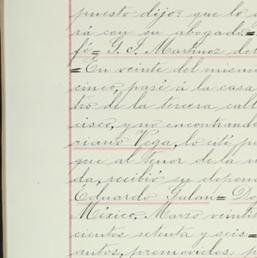 puesto dijo: que lo
rá con su abogado=
fó= G. S. Martinez
=En veinte del mismo
cinco, pasé á la casa
tro de la tercera call
cisco, y no encontrand
riano Vega, lo cité p
que al tenor de la
da, recibió su depen
Eduardo Galan=
México, Marzo veinti
cientos setenta y seis=
autos, promovidos p